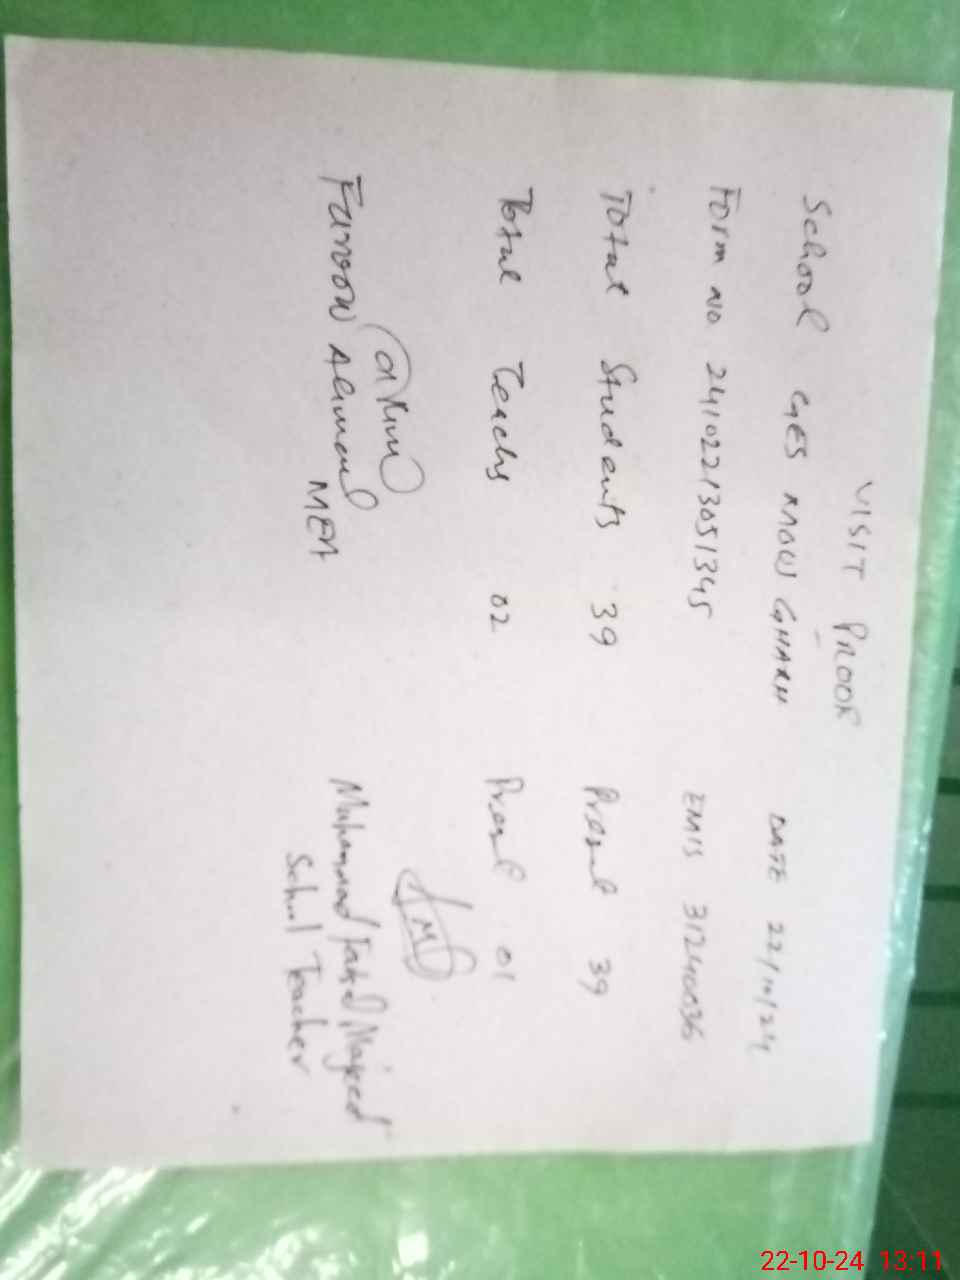 VISIT PROOF
School GES KAOW GHARH DATE 22/10/24
Form No. 24102213051345 EMIS 31240036
Total Students 39 Present 39
Total Teachs 02 Present 01
Farooq Ahmed
MEA
Muhammad Faisal Majeed
School Teacher
22-10-24 13:11